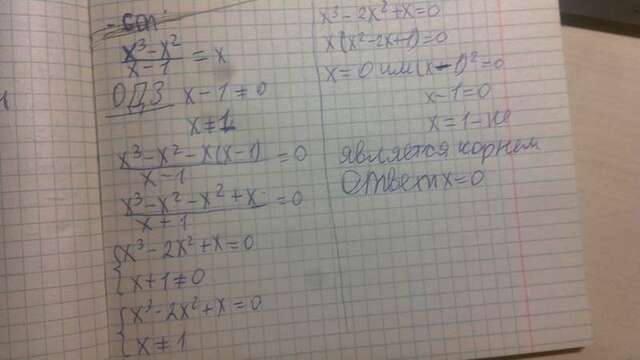 x³-x²/x-1 = x
ОДЗ x-1≠0
x≠1
x³-x²-x(x-1)/x-1 = 0
x³-x²-x²+x/x+1 = 0
{x³-2x²+x=0
x+1≠0
{x³-2x²+x=0
x≠1
x³-2x²+x=0
x(x²-2x+1)=0
x=0 или (x-1)²=0
x-1=0
x=1-не
является корнем
Ответ x=0